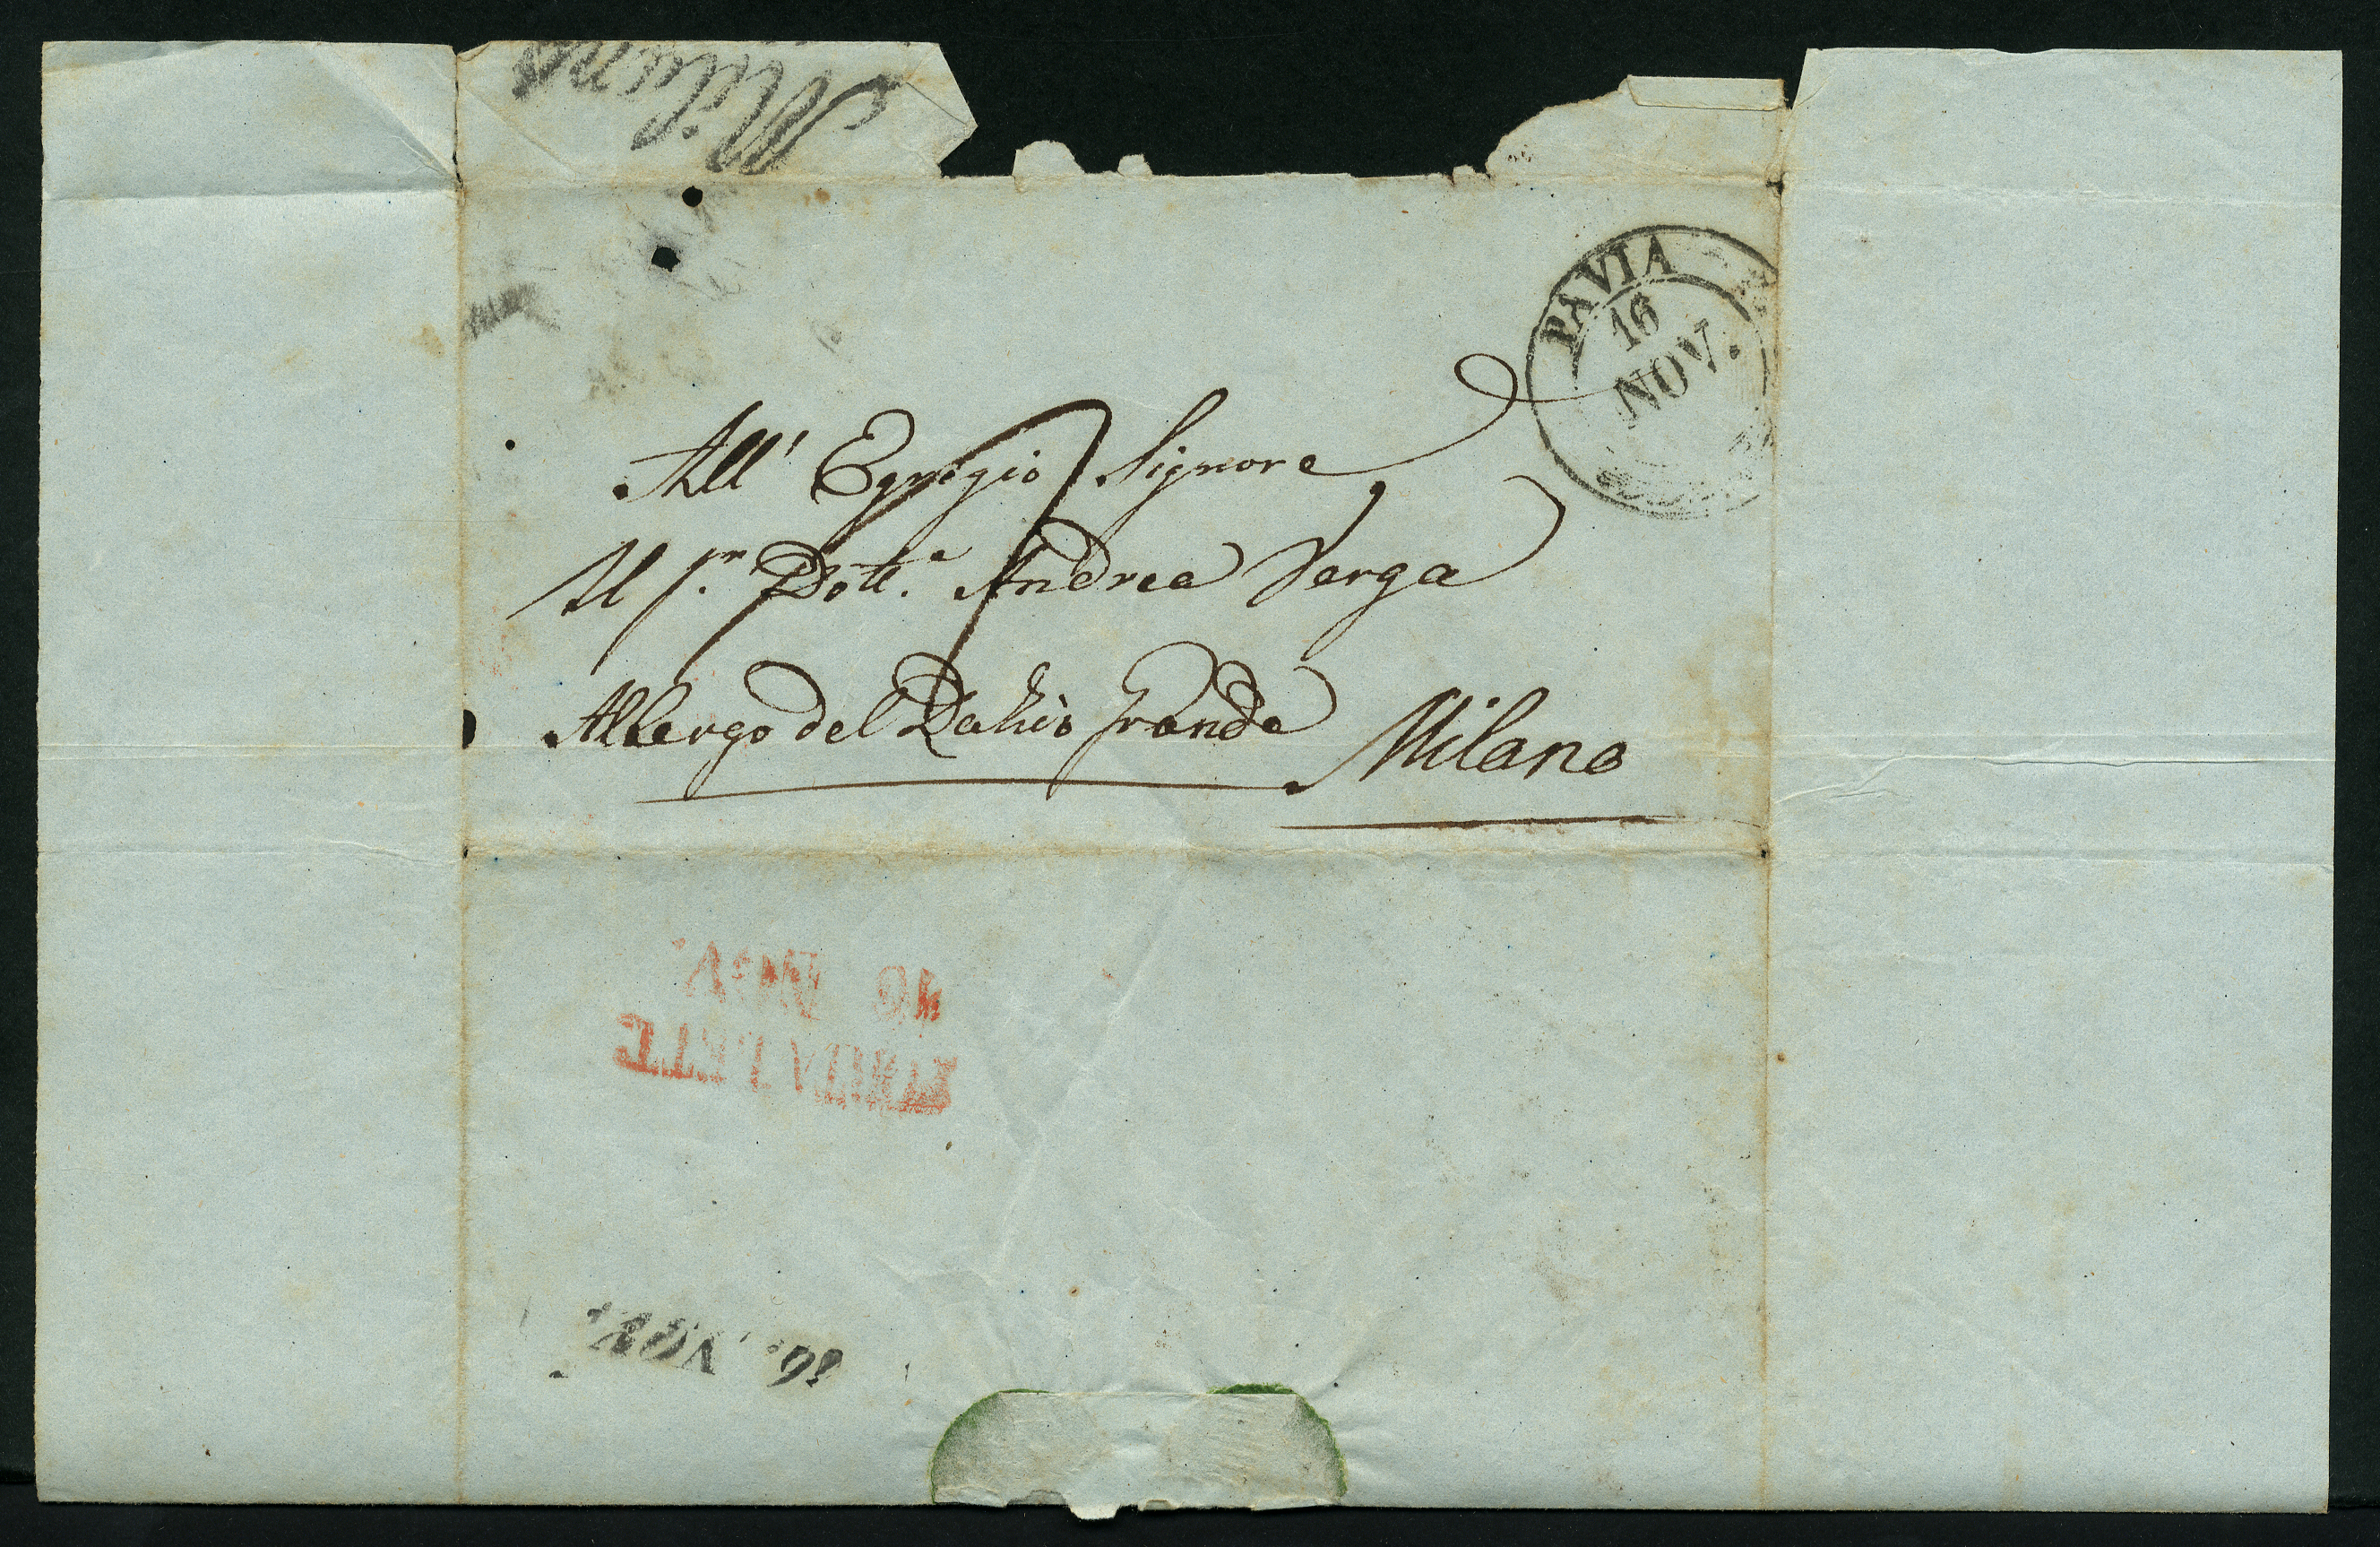 Milano
PAVIA
16
NOV.
All' Egregio Signore
Il S.r Dott.e Andrea Verga
Albergo del Rabió grande Milano
16 NOV.
16. NOV.